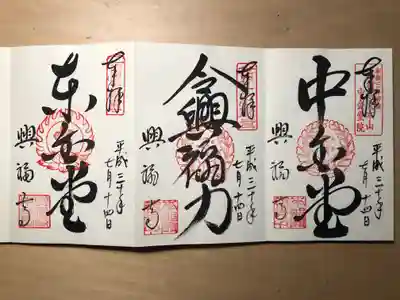 奉拝
平成三十年
七月十四日
中金堂
興福寺
奉拝
平成三十年
七月十四日
令興福力
興福寺
奉拝
平成三十年
七月十四日
東金堂
興福寺